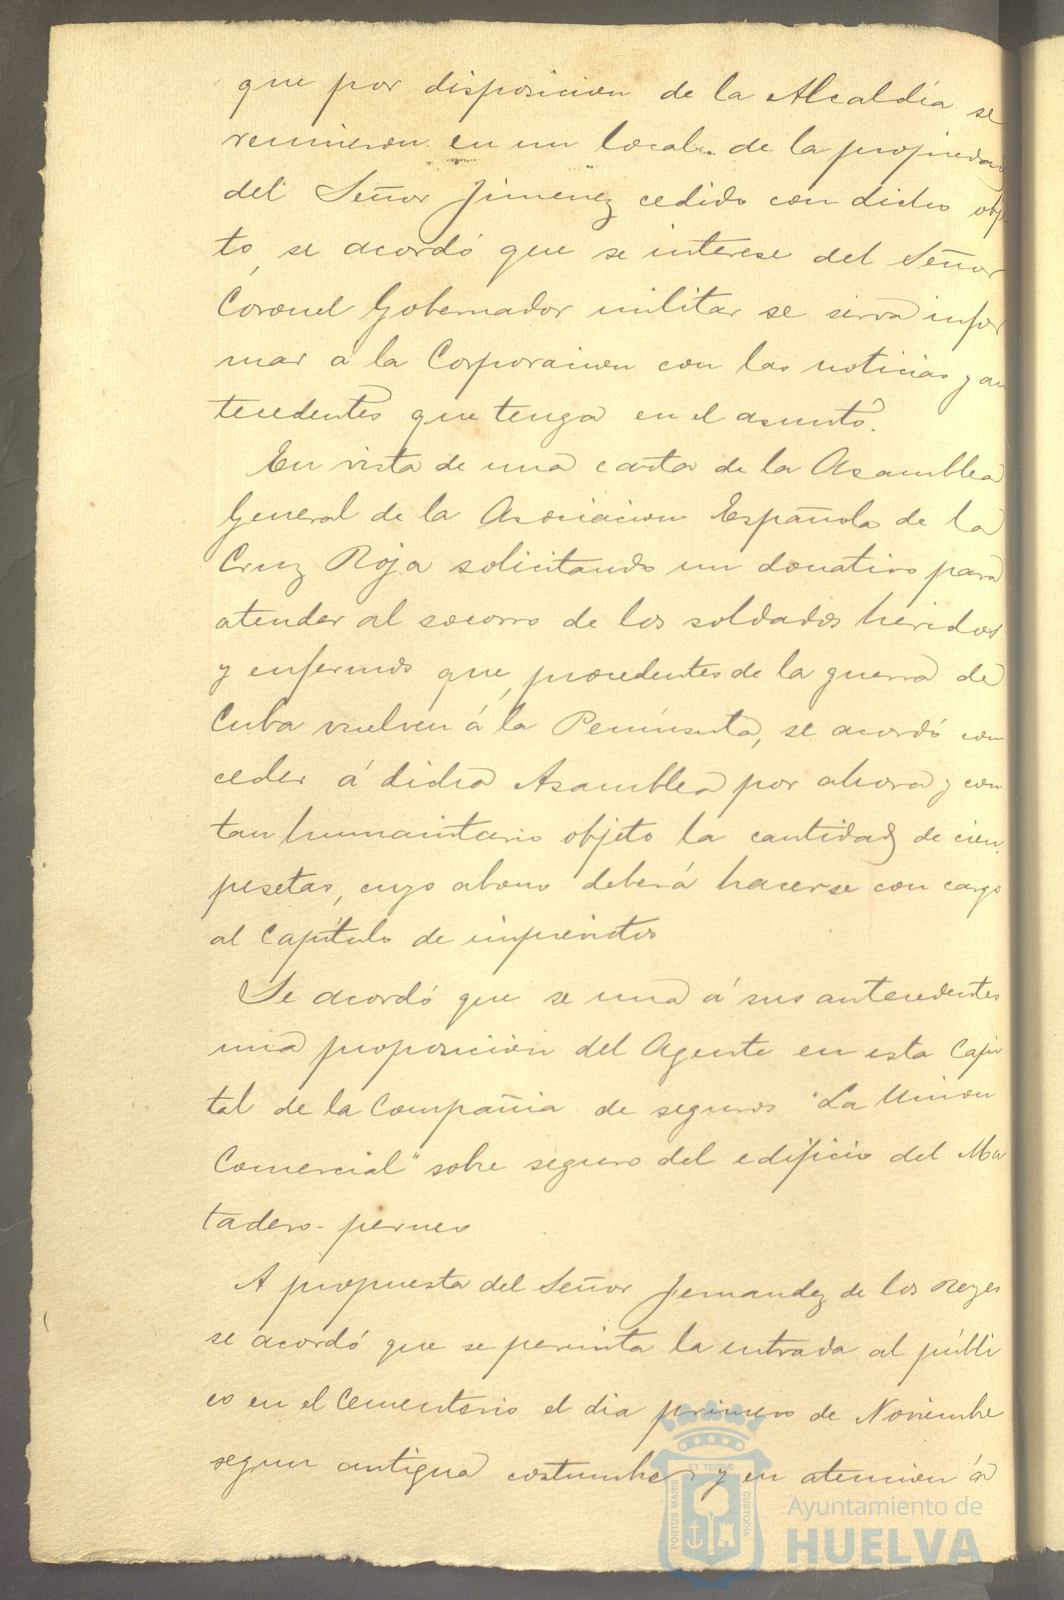 que por disposicion de la Alcaldía se
reunieron en un local de la propiedad
del Señor Jimenez cedido con dicho obje
to, se acordó que se interese del Señor
Coronel Gobernador militar se sirva infor
mar a la Corporacion con las noticias y an
tecedentes que tenga en el asunto.
En vista de una carta de la Asamblea
General de la Asociacion Española de la
Cruz Roja solicitando un donativo para
atender al socorro de los soldados heridos
y enfermos que, procedentes de la guerra de
Cuba vuelven á la Península, se acordó con
ceder á dicha Asamblea por ahora y con
tan humanitario objeto la cantidad de cien
pesetas, cuyo abono deberá hacerse con cargo
al Capítulo de imprevistos
Se acordó que se una á sus antecedentes
una proposicion del Agente en esta Capi
tal de la Compañia de seguros "La Union
Comercial" sobre seguro del edificio del Ma
tadero-perneo
A propuesta del Señor Fernandez de los Reyes
se acordó que se permita la entrada al públi
co en el Cementerio el dia primero de Noviembre
segun antigua costumbre y en atencion á
PORTUS MARIS ET TERRE CUSTODIA
Ayuntamiento de
HUELVA